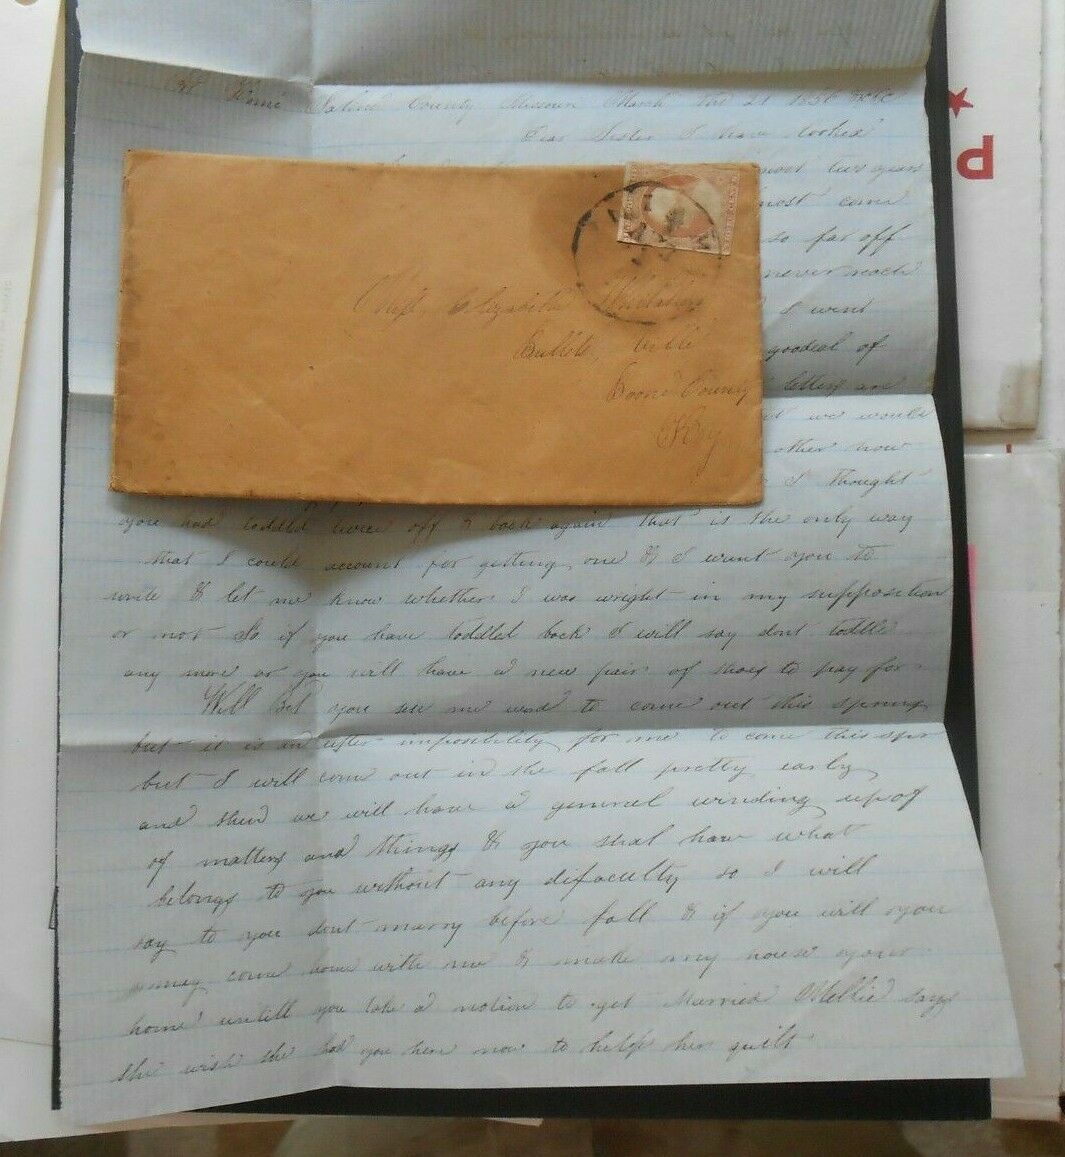 At Home Saline County Missouri March the 21 185
Dear Sister I have looked
almost two years
most come
so far off
never reach
I went
goodeal of
letters are
we would
other now
I thought
you had toddled twice off & back again that is the only way
that I could account for getting one & I want you to
write & let me know whether I was wright in my supposition
or not So if you have toddled back I will say dont toddle
any more or you will have a new pair of shoes to pay for
Well Bet you see me want to come out this spring
but it is an utter imposibility for me to come this spr
but I will come out in the fall pretty early
and then we will have a general winding up of
of matters and things & you shal have what
belongs to you without any difaculty so I will
say to you dont marry before fall & if you will you
may come home with me & make my house your
home untill you take a notion to get Married Mellie says
she wish she had you here now to help her quilt
Miss Elizabeth
Bullitts ville
Boone County
Ky
P